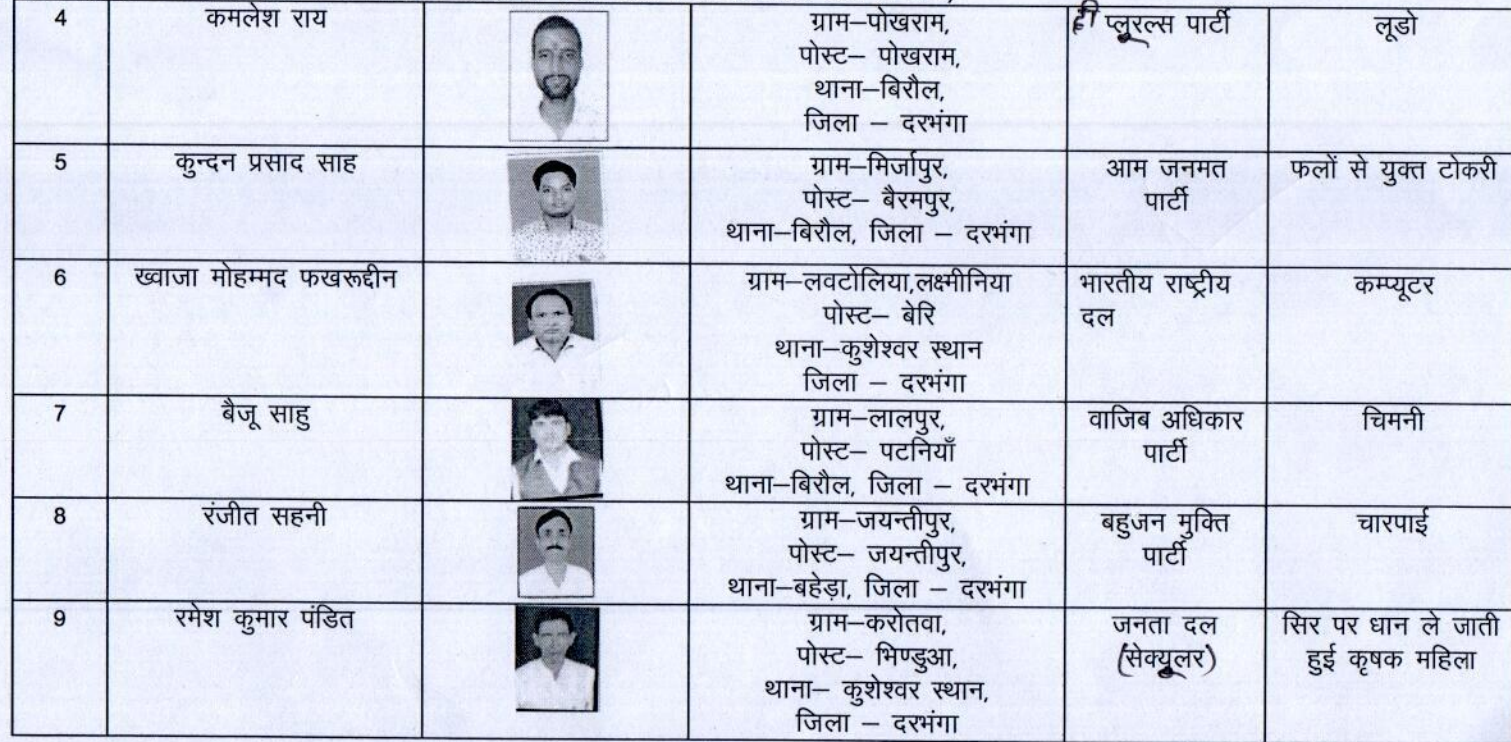 4
कमलेश राय
ग्राम–पोखराम,
पोस्ट– पोखराम,
थाना–बिरौल,
जिला – दरभंगा
दी प्लूरल्स पार्टी
लूडो
5
कुन्दन प्रसाद साह
ग्राम–मिर्जापुर,
पोस्ट– बैरमपुर,
थाना–बिरौल, जिला – दरभंगा
आम जनमत
पार्टी
फलों से युक्त टोकरी
6
ख्वाजा मोहम्मद फखरूद्दीन
ग्राम–लवटोलिया,लक्ष्मीनिया
पोस्ट– बेरि
थाना–कुशेश्वर स्थान
जिला – दरभंगा
भारतीय राष्ट्रीय
दल
कम्प्यूटर
7
बैजू साहु
ग्राम–लालपुर,
पोस्ट– पटनियाँ
थाना–बिरौल, जिला – दरभंगा
वाजिब अधिकार
पार्टी
चिमनी
8
रंजीत सहनी
ग्राम–जयन्तीपुर,
पोस्ट– जयन्तीपुर,
थाना–बहेड़ा, जिला – दरभंगा
बहुजन मुक्ति
पार्टी
चारपाई
9
रमेश कुमार पंडित
ग्राम–करोतवा,
पोस्ट– भिण्डुआ,
थाना– कुशेश्वर स्थान,
जिला – दरभंगा
जनता दल
(सेक्यूलर)
सिर पर धान ले जाती
हुई कृषक महिला